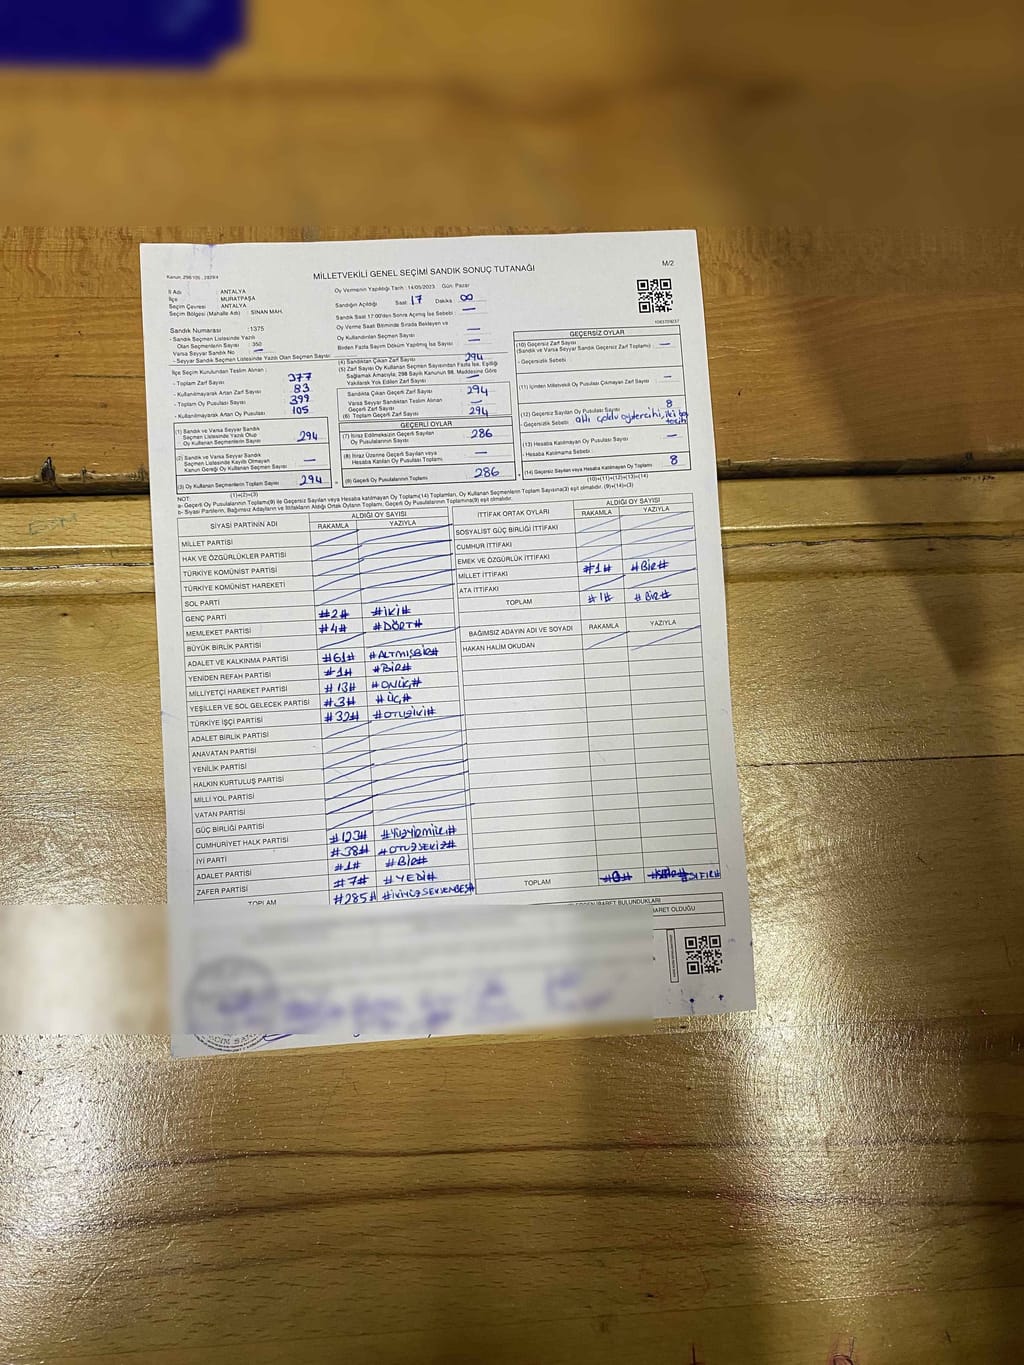 Kanun: 298/105 , 2839/4
MİLLETVEKİLİ GENEL SEÇİMİ SANDIK SONUÇ TUTANAĞI
M/2
İl Adı : ANTALYA
İlçe : MURATPAŞA
Seçim Çevresi : ANTALYA
Seçim Bölgesi (Mahalle Adı) : SİNAN MAH.
Sandık Numarası : 1375
- Sandık Seçmen Listesinde Yazılı
Olan Seçmenlerin Sayısı : 350
Varsa Seyyar Sandık No : —
- Seyyar Sandık Seçmen Listesinde Yazılı Olan Seçmen Sayısı:
Oy Vermenin Yapıldığı Tarih : 14/05/2023 Gün: Pazar
Sandığın Açıldığı Saat 17 Dakika 00
Sandık Saat 17:00'den Sonra Açılmış İse Sebebi : —
Oy Verme Saati Bitiminde Sırada Bekleyen ve
Oy Kullandırılan Seçmen Sayısı —
Birden Fazla Sayım Döküm Yapılmış İse Sayısı —
İlçe Seçim Kurulundan Teslim Alınan :
- Toplam Zarf Sayısı : 377
- Kullanılmayarak Artan Zarf Sayısı : 83
- Toplam Oy Pusulası Sayısı : 399
- Kullanılmayarak Artan Oy Pusulası : 105
(1) Sandık ve Varsa Seyyar Sandık
Seçmen Listesinde Yazılı Olup
Oy Kullanan Seçmenlerin Sayısı 294
(2) Sandık ve Varsa Seyyar Sandık
Seçmen Listesinde Kayıtlı Olmayan
Kanun Gereği Oy Kullanan Seçmen Sayısı —
(3) Oy Kullanan Seçmenlerin Toplam Sayısı 294
(1)+(2)=(3)
(4) Sandıktan Çıkan Zarf Sayısı 294
(5) Zarf Sayısı Oy Kullanan Seçmen Sayısından Fazla İse, Eşitliği
Sağlamak Amacıyla, 298 Sayılı Kanunun 98. Maddesine Göre
Yakılarak Yok Edilen Zarf Sayısı —
Sandıkta Çıkan Geçerli Zarf Sayısı 294
Varsa Seyyar Sandıktan Teslim Alınan
Geçerli Zarf Sayısı —
(6) Toplam Geçerli Zarf Sayısı 294
GEÇERLİ OYLAR
(7) İtiraz Edilmeksizin Geçerli Sayılan
Oy Pusulalarının Sayısı 286
(8) İtiraz Üzerine Geçerli Sayılan veya
Hesaba Katılan Oy Pusulası Toplamı —
(9) Geçerli Oy Pusulalarının Toplamı 286
GEÇERSİZ OYLAR
(10) Geçersiz Zarf Sayısı
(Sandık ve Varsa Seyyar Sandık Geçersiz Zarf Toplamı) —
- Geçersizlik Sebebi
(11) İçinden Milletvekili Oy Pusulası Çıkmayan Zarf Sayısı —
(12) Geçersiz Sayılan Oy Pusulası Sayısı 8
- Geçersizlik Sebebi :
(13) Hesaba Katılmayan Oy Pusulası Sayısı —
- Hesaba Katılmama Sebebi :
(14) Geçersiz Sayılan veya Hesaba Katılmayan Oy Toplamı 8
(10)+(11)+(12)+(13)=(14)
NOT:
a- Geçerli Oy Pusulalarının Toplamı(9) ile Geçersiz Sayılan veya Hesaba katılmayan Oy Toplam(14) Toplamları, Oy Kullanan Seçmenlerin Toplam Sayısına(3) eşit olmalıdır. (9)+(14)=(3)
b- Siyasi Partilerin, Bağımsız Adayların ve İttifakların Aldığı Ortak Oyların Toplamı, Geçerli Oy Pusulalarının Toplamına(9) eşit olmalıdır.
SİYASİ PARTİNİN ADI ALDIĞI OY SAYISI
RAKAMLA YAZIYLA
MİLLET PARTİSİ
HAK VE ÖZGÜRLÜKLER PARTİSİ
TÜRKİYE KOMÜNİST PARTİSİ
TÜRKİYE KOMÜNİST HAREKETİ
SOL PARTİ
GENÇ PARTİ #2# #İKİ#
MEMLEKET PARTİSİ #4# #DÖRT#
BÜYÜK BİRLİK PARTİSİ
ADALET VE KALKINMA PARTİSİ #61# #ALTMIŞBİR#
YENİDEN REFAH PARTİSİ #1# #BİR#
MİLLİYETÇİ HAREKET PARTİSİ #13# #ONÜÇ#
YEŞİLLER VE SOL GELECEK PARTİSİ #3# #ÜÇ#
TÜRKİYE İŞÇİ PARTİSİ #32# #OTUZİKİ#
ADALET BİRLİK PARTİSİ
ANAVATAN PARTİSİ
YENİLİK PARTİSİ
HALKIN KURTULUŞ PARTİSİ
MİLLİ YOL PARTİSİ
VATAN PARTİSİ
GÜÇ BİRLİĞİ PARTİSİ
CUMHURİYET HALK PARTİSİ #123# #YÜZYİRMİÜÇ#
İYİ PARTİ #38# #OTUZSEKİZ#
ADALET PARTİSİ #1# #BİR#
ZAFER PARTİSİ #7# #YEDİ#
TOPLAM #285# #İKİYÜZSEKSENBEŞ#
İTTİFAK ORTAK OYLARI ALDIĞI OY SAYISI
RAKAMLA YAZIYLA
SOSYALİST GÜÇ BİRLİĞİ İTTİFAKI
CUMHUR İTTİFAKI
EMEK VE ÖZGÜRLÜK İTTİFAKI
MİLLET İTTİFAKI #1# #BİR#
ATA İTTİFAKI
TOPLAM #1# #BİR#
BAĞIMSIZ ADAYIN ADI VE SOYADI RAKAMLA YAZIYLA
HAKAN HALİM OKUDAN
TOPLAM #0# #SIFIR#